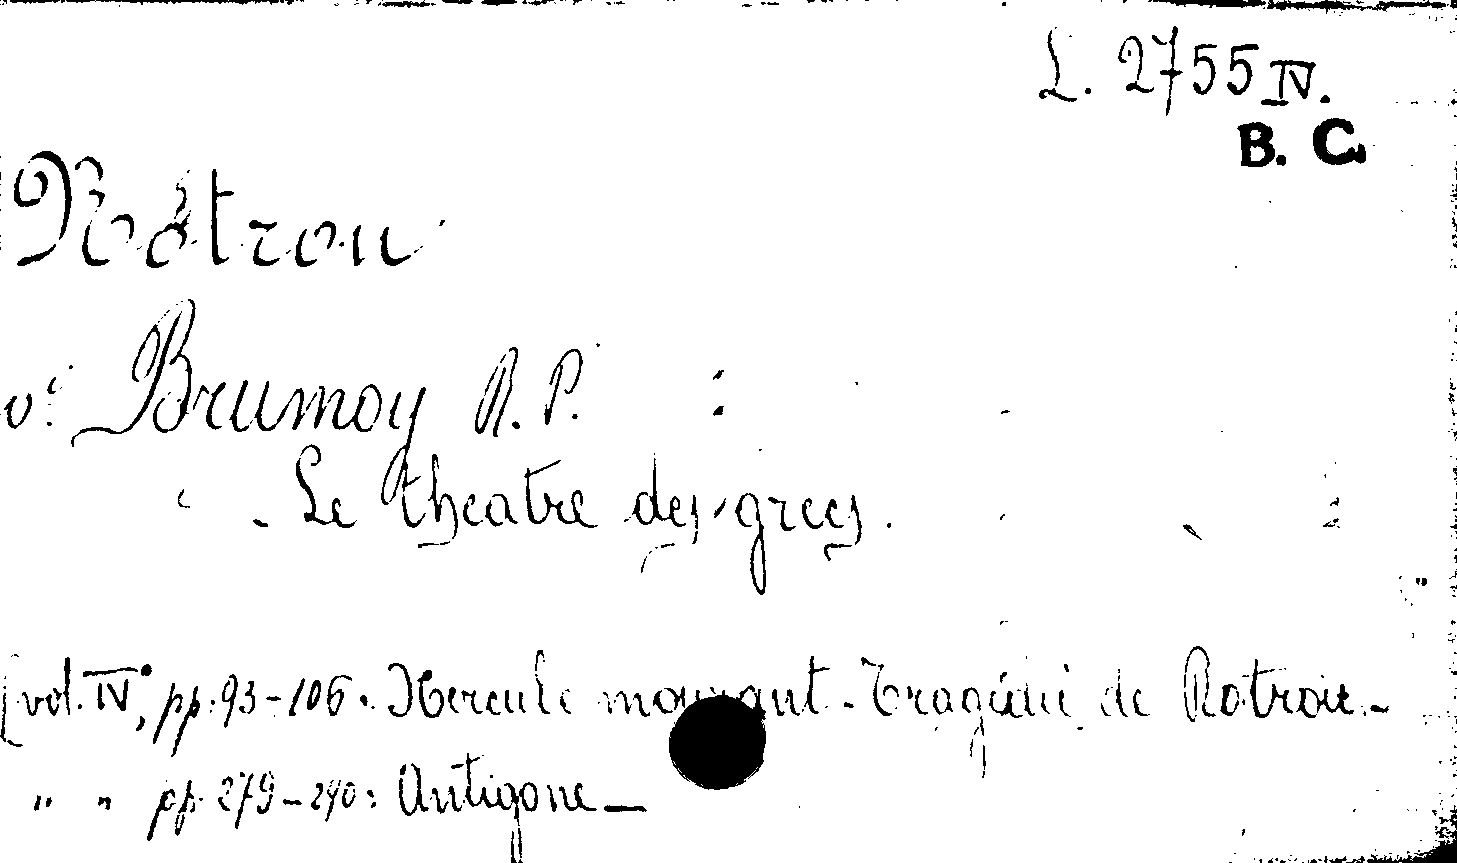 L. 2755 IV.
B. C.
Rotrou
v. Brumoy R. P. :
- Le théatre des grecs.
[vol. IV, pp. 93-106. Hercule mourant - Tragédie de Rotrou -
" " pp. 279-290: Antigone -